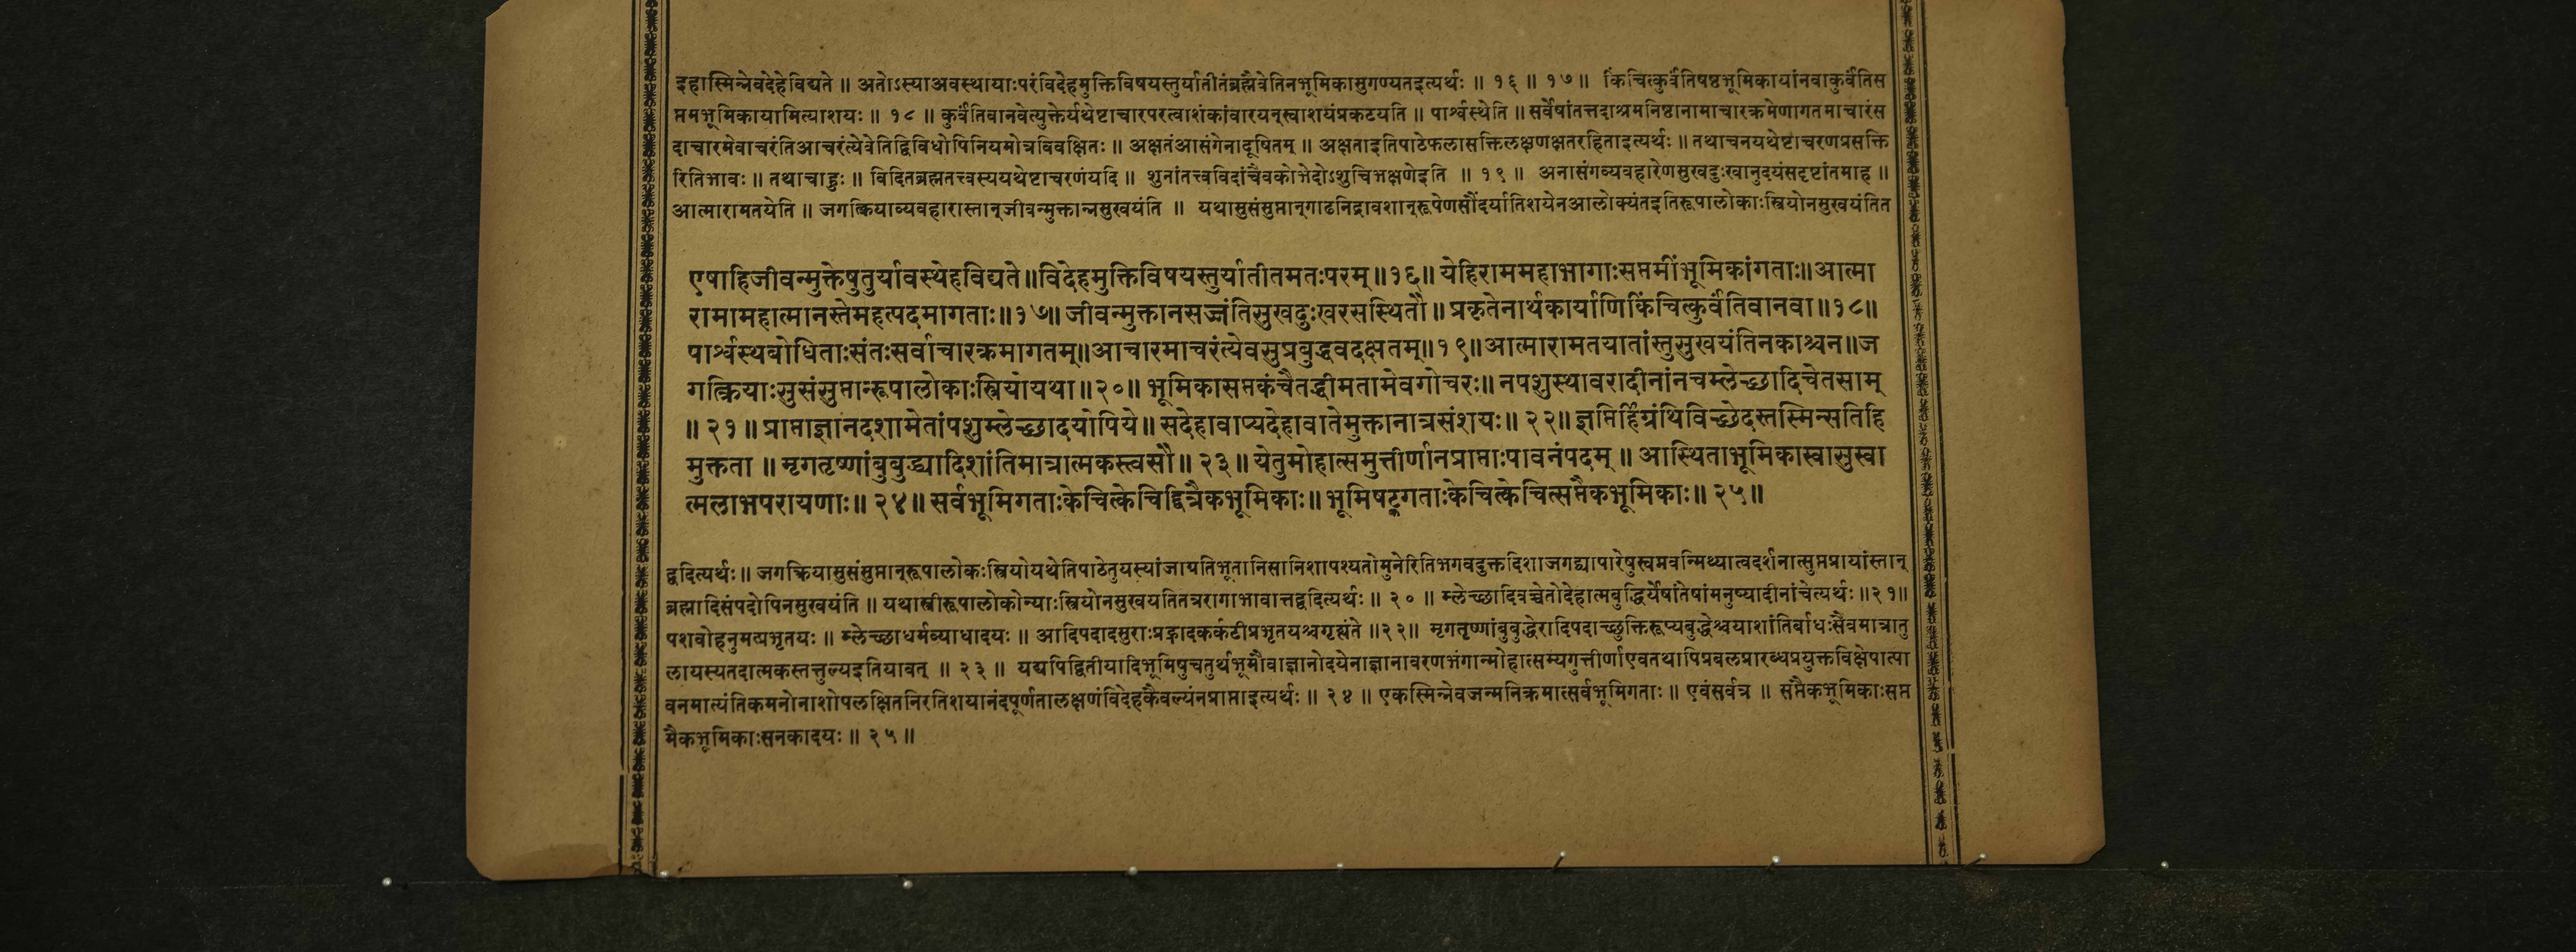 इहास्मिन्नेवदेहेविद्यते ॥ अतोऽस्याअवस्थायाःपरंविदेहमुक्तिविषयस्तुर्यातीतंब्रह्मैवेतिनभूमिकासुगण्यतइत्यर्थः ॥ १६ ॥ १७ ॥ किंचित्कुर्वंतिषष्ठभूमिकायांनवाकुर्वंतिस
प्तमभूमिकायामित्याशयः ॥ १८ ॥ कुर्वंतिवानवेत्युक्तेर्यथेष्टाचारपरत्वाशंकांवारयन्स्वाशयंप्रकटयति ॥ पार्श्वस्थेति ॥ सर्वेषांतत्तदाश्रमनिष्ठानामाचारक्रमेणागतमाचारंस
दाचारमेवाचरंतिआचरंत्येवेतिद्विविधोपिनियमोत्रविवक्षितः ॥ अक्षतंआसंगेनादूषितम् ॥ अक्षताइतिपाठेफलासक्तिलक्षणक्षतरहिताइत्यर्थः ॥ तथाचनयथेष्टाचरणप्रसक्ति
रितिभावः ॥ तथाचाहुः ॥ विदितब्रह्मतत्त्वस्ययथेष्टाचरणंयदि ॥ शुनांतत्त्वविदांचैवकोभेदोऽशुचिभक्षणेइति ॥ १९ ॥ अनासंगव्यवहारेणसुखदुःखानुदयंसदृष्टांतमाह ॥
आत्मारामतयेति ॥ जगत्क्रियाव्यवहारास्तान्जीवन्मुक्तान्नसुखयंति ॥ यथासुसंसुप्तान्गाढनिद्रावशान्रूपेणसौंदर्यातिशयेनआलोक्यंतइतिरूपालोकाःस्त्रियोनसुखयंतित
एषाहिजीवन्मुक्तेषुतुर्यावस्थेहविद्यते॥विदेहमुक्तिविषयस्तुर्यातीतमतःपरम्॥१६॥ येहिराममहाभागाःसप्तमींभूमिकांगताः॥आत्मा
रामामहात्मानस्तेमहत्पदमागताः॥१७॥ जीवन्मुक्तानसज्जंतिसुखदुःखरसस्थितौ॥ प्रकृतेनार्थकार्याणिकिंचित्कुर्वंतिवानवा॥१८॥
पार्श्वस्थबोधिताःसंतःसर्वाचारक्रमागतम्॥आचारमाचरंत्येवसुप्रबुद्धवदक्षतम्॥१९॥आत्मारामतयातांस्तुसुखयंतिनकाश्चन॥ज
गत्क्रियाःसुसंसुप्तान्रूपालोकाःस्त्रियोयथा॥२०॥ भूमिकासप्तकंचैतद्धीमतामेवगोचरः॥ नपशुस्थावरादीनांनचम्लेच्छादिचेतसाम्
॥ २१ ॥ प्राप्ताज्ञानदशामेतांपशुम्लेच्छादयोपिये॥ सदेहावाप्यदेहावातेमुक्तानात्रसंशयः॥ २२॥ ज्ञप्तिर्हिग्रंथिविच्छेदस्तस्मिन्सतिहि
मुक्तता ॥ मृगतृष्णांबुबुद्ध्यादिशांतिमात्रात्मकस्त्वसौ॥ २३॥ येतुमोहात्समुत्तीर्णानप्राप्ताःपावनंपदम् ॥ आस्थिताभूमिकास्वासुस्वा
त्मलाभपरायणाः॥ २४॥ सर्वभूमिगताःकेचित्केचिद्द्वित्रैकभूमिकाः॥ भूमिषट्कगताःकेचित्केचित्सप्तैकभूमिकाः॥ २५॥
द्वदित्यर्थः॥ जगत्क्रियासुसंसुप्तान्रूपालोकःस्त्रियोयथेतिपाठेतुयस्यांजाग्रतिभूतानिसानिशापश्यतोमुनेरितिभगवदुक्तदिशाजगद्व्यापारेषुस्वप्नवन्मिथ्यात्वदर्शनात्सुप्तप्रायांस्तान्
ब्रह्मादिसंपदोपिनसुखयंति ॥ यथास्त्रीरूपालोकोन्याःस्त्रियोनसुखयतितत्ररागाभावात्तद्वदित्यर्थः ॥ २० ॥ म्लेच्छादिवच्चेतोदेहात्मबुद्धिर्येषांतेषांमनुष्यादीनांचेत्यर्थः ॥२१॥
पशवोहनुमत्प्रभृतयः ॥ म्लेच्छाधर्मव्याधादयः ॥ आदिपदादसुराःप्रह्लादकर्कटीप्रभृतयश्चगृह्यंते ॥२२॥ मृगतृष्णांबुबुद्धेरादिपदाच्छुक्तिरूप्यबुद्धेश्चयाशांतिर्बाधःसैवमात्रातु
लायस्यतदात्मकस्तत्तुल्यइतियावत् ॥ २३ ॥ यद्यपिद्वितीयादिभूमिषुचतुर्थभूमौवाज्ञानोदयेनाज्ञानावरणभंगान्मोहात्सम्यगुत्तीर्णाएवतथापिप्रबलप्रारब्धप्रयुक्तविक्षेपात्पा
वनमात्यंतिकमनोनाशोपलक्षितनिरतिशयानंदपूर्णतालक्षणंविदेहकैवल्यंनप्राप्ताइत्यर्थः ॥ २४ ॥ एकस्मिन्नेवजन्मनिक्रमात्सर्वभूमिगताः ॥ एवंसर्वत्र ॥ सप्तैकभूमिकाःसप्त
मैकभूमिकाःसनकादयः ॥ २५ ॥